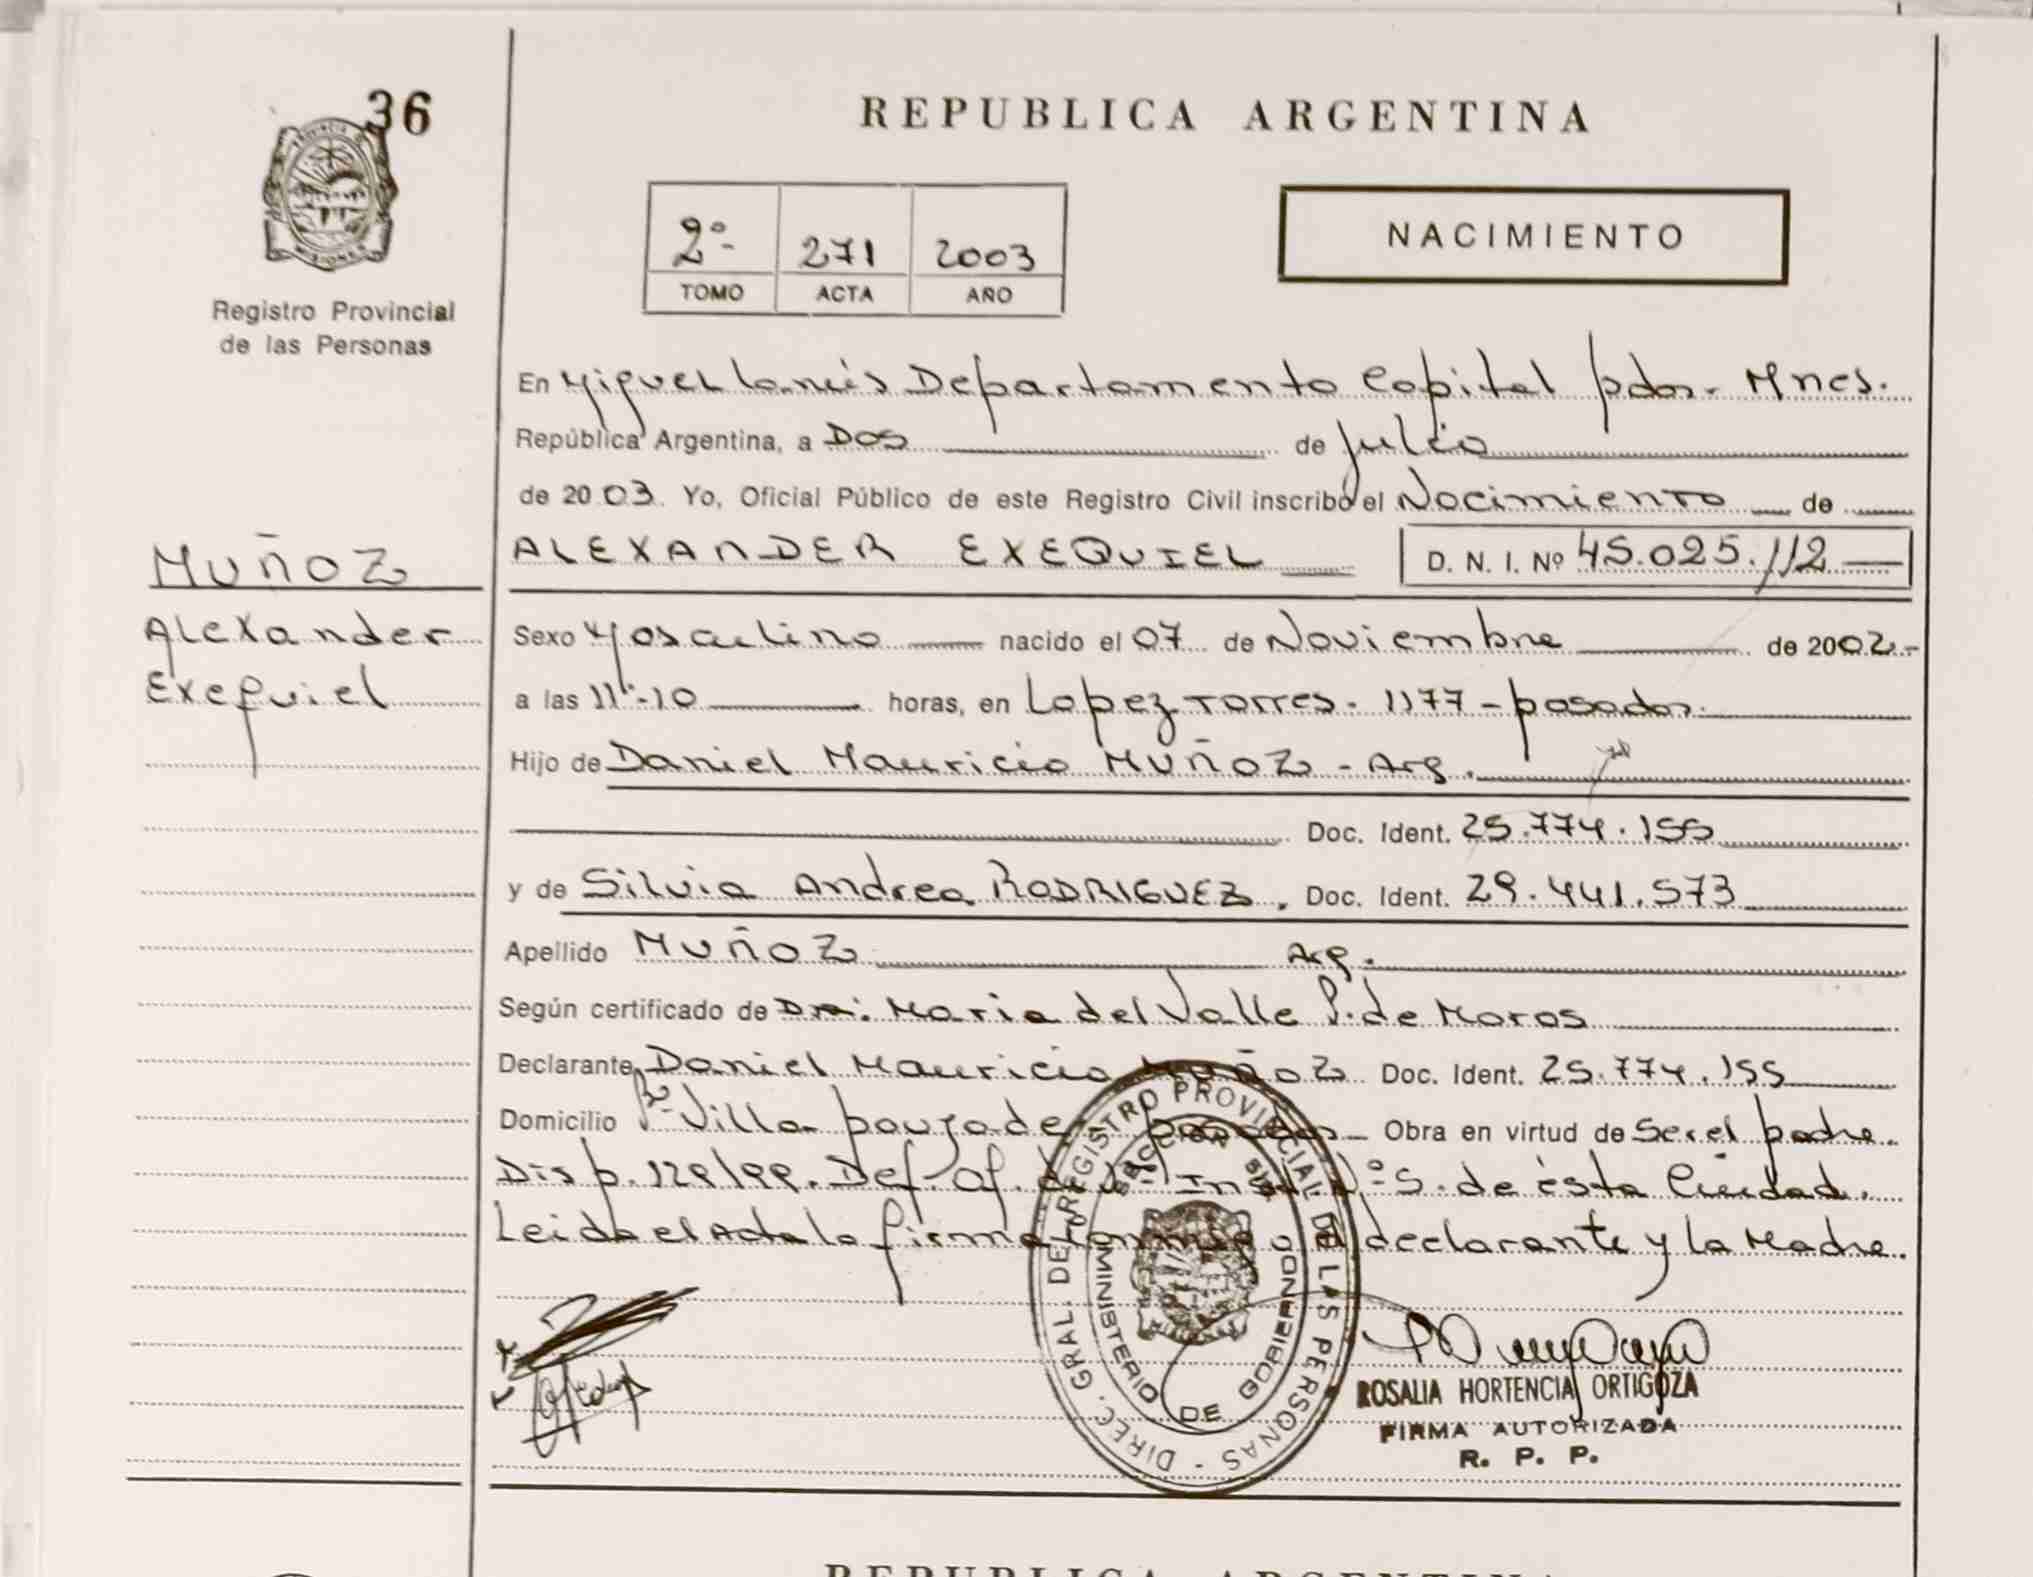 36
REPUBLICA ARGENTINA
2º- 271 2003
TOMO ACTA AÑO
NACIMIENTO
Registro Provincial
de las Personas
En Miguel Lanús Departamento Capital pdas- Mnes.
República Argentina, a Dos de Julio
de 2003. Yo, Oficial Público de este Registro Civil inscribo el Nacimiento de
MUÑOZ
Alexander
Exequiel
ALEXANDER EXEQUIEL D. N. I. Nº 45.025.112
Sexo Masculino nacido el 07 de Noviembre de 2002.-
a las 11:10 horas, en Lopez Torres. 1177 - posadas.
Hijo de Daniel Mauricio MUÑOZ - Arg.
Doc. Ident. 25.774.155
y de Silvia Andrea RODRIGUEZ. Doc. Ident. 29.441.573
Apellido MUÑOZ Arg.
Según certificado de Dra: Maria del Valle P. de Moros
Declarante Daniel Mauricio MUÑOZ Doc. Ident. 25.774.155
Domicilio Bº Villa Obra en virtud de Ser el padre.
Disp. 129/99. Def. Of. de Nº 5. de ésta Ciudad.
Leida el Acta la firma conmigo el declarante y la Madre.
DIREC. GRAL. DEL REGISTRO PROVINCIAL DE LAS PERSONAS -
MINISTERIO DE GOBIERNO
ROSALIA HORTENCIA ORTIGOZA
FIRMA AUTORIZADA
R. P. P.
REPUBLICA ARGENTINA